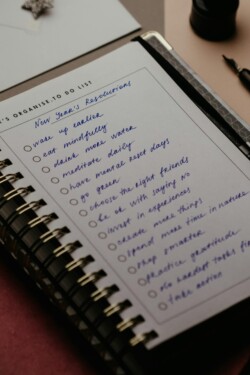 'S ORGANISE.TO DO LIST
New Year's Resolutions
wake up earlier
eat mindfully
drink more water
meditate daily
have mental reset days
go green
choose the right friends
be ok with saying no
invest in experiences
create more things
spend more time in nature
shop smarter
practice gratitude
do hardest tasks first
take action